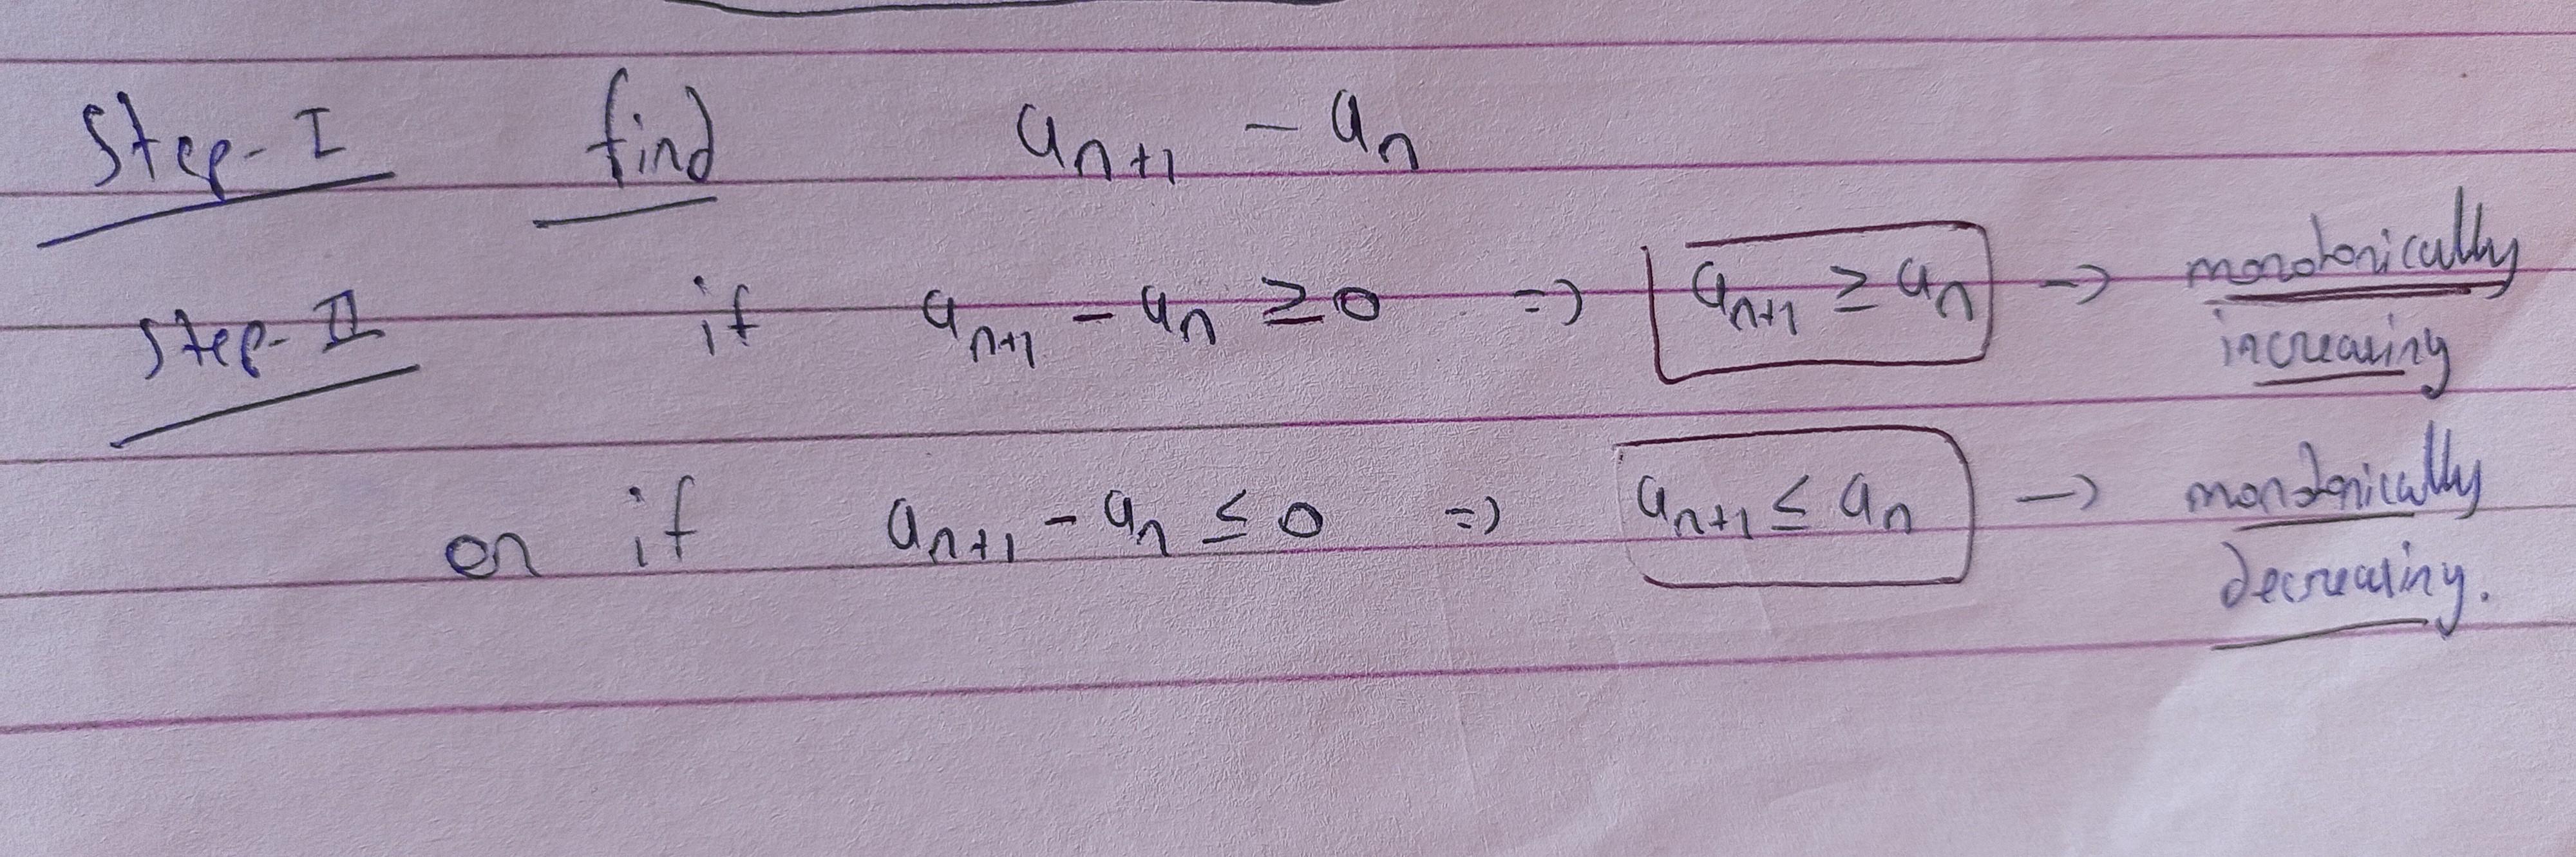 Step-I find aₙ₊₁ - aₙ
Step-II if aₙ₊₁ - aₙ ≥ 0 => aₙ₊₁ ≥ aₙ → monotonically
increasing
or if aₙ₊₁ - aₙ ≤ 0 => aₙ₊₁ ≤ aₙ → monotonically
decreasing.